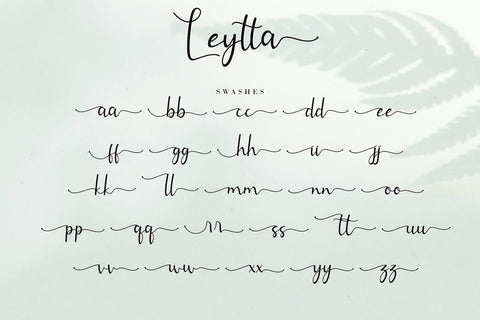 Leytta
SWASHES
aa bb cc dd ee
ff gg hh ii jj
kk ll mm nn oo
pp qq rr ss tt uu
vv ww xx yy zz